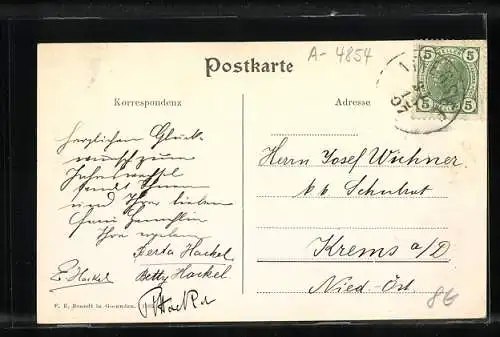 A- 4854
Postkarte
Korrespondenz
Adresse
5 5
5 5
Herzlichen Glück-
wunsch zum
Jahreswechsel
sendet Ihnen
und Ihrer lieben
Frau
Ihre
Berta Hackel
Betty Hackel
E. Hackel
Herrn Josef Wichner
k k Schulrat
Krems a/D
Nied-Öst
86
F. E. Brandt in Gmunden.